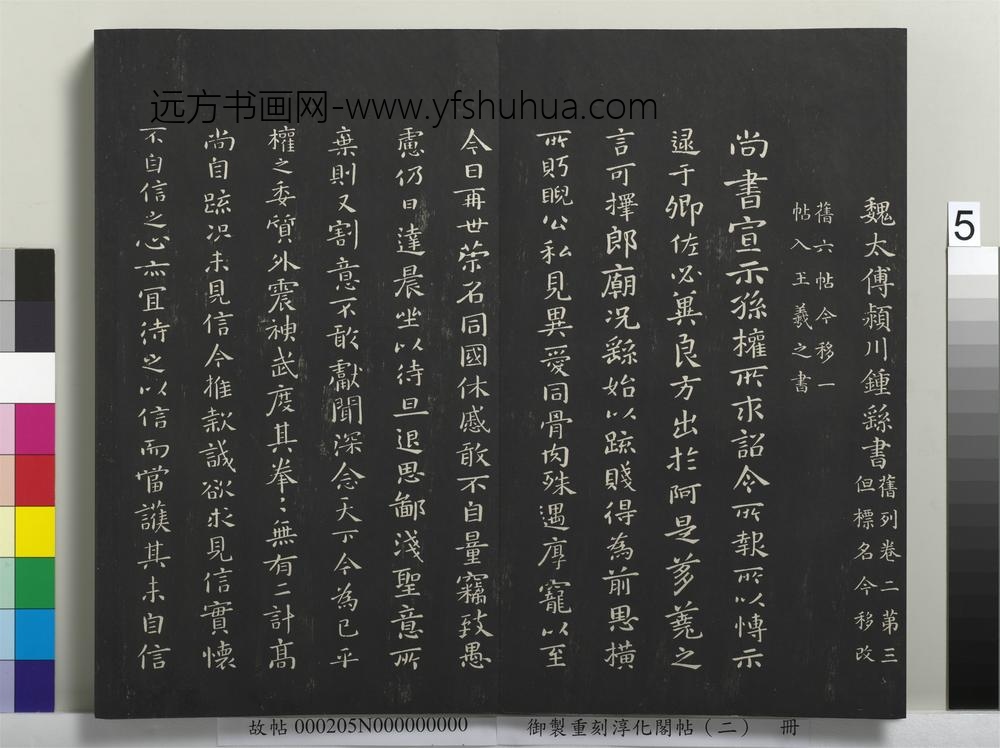 远方书画网-www.yfshuhua.com
魏太傅潁川鍾繇書
舊列卷二第三
但標名今移改
舊六帖今移一
帖入王羲之書
尚書宣示孫權所求詔令所報所以博示
逯于卿佐必冀良方出於阿是芻蕘之
言可擇郎廟況繇始以疏賤得為前恩橫
所眄睨公私見異愛同骨肉殊遇厚寵以至
今日再世榮名同國休慼敢不自量竊致愚
慮仍日達晨坐以待旦退思鄙淺聖意所
棄則又割意不敢獻聞深念天下今為已平
權之委質外震神武度其拳〻無有二計高
尚自疏況未見信今推款誠欲求見信實懷
不自信之心亦宜待之以信而當護其未自信
5
故帖 000205N000000000
御製重刻淳化閣帖（二） 冊